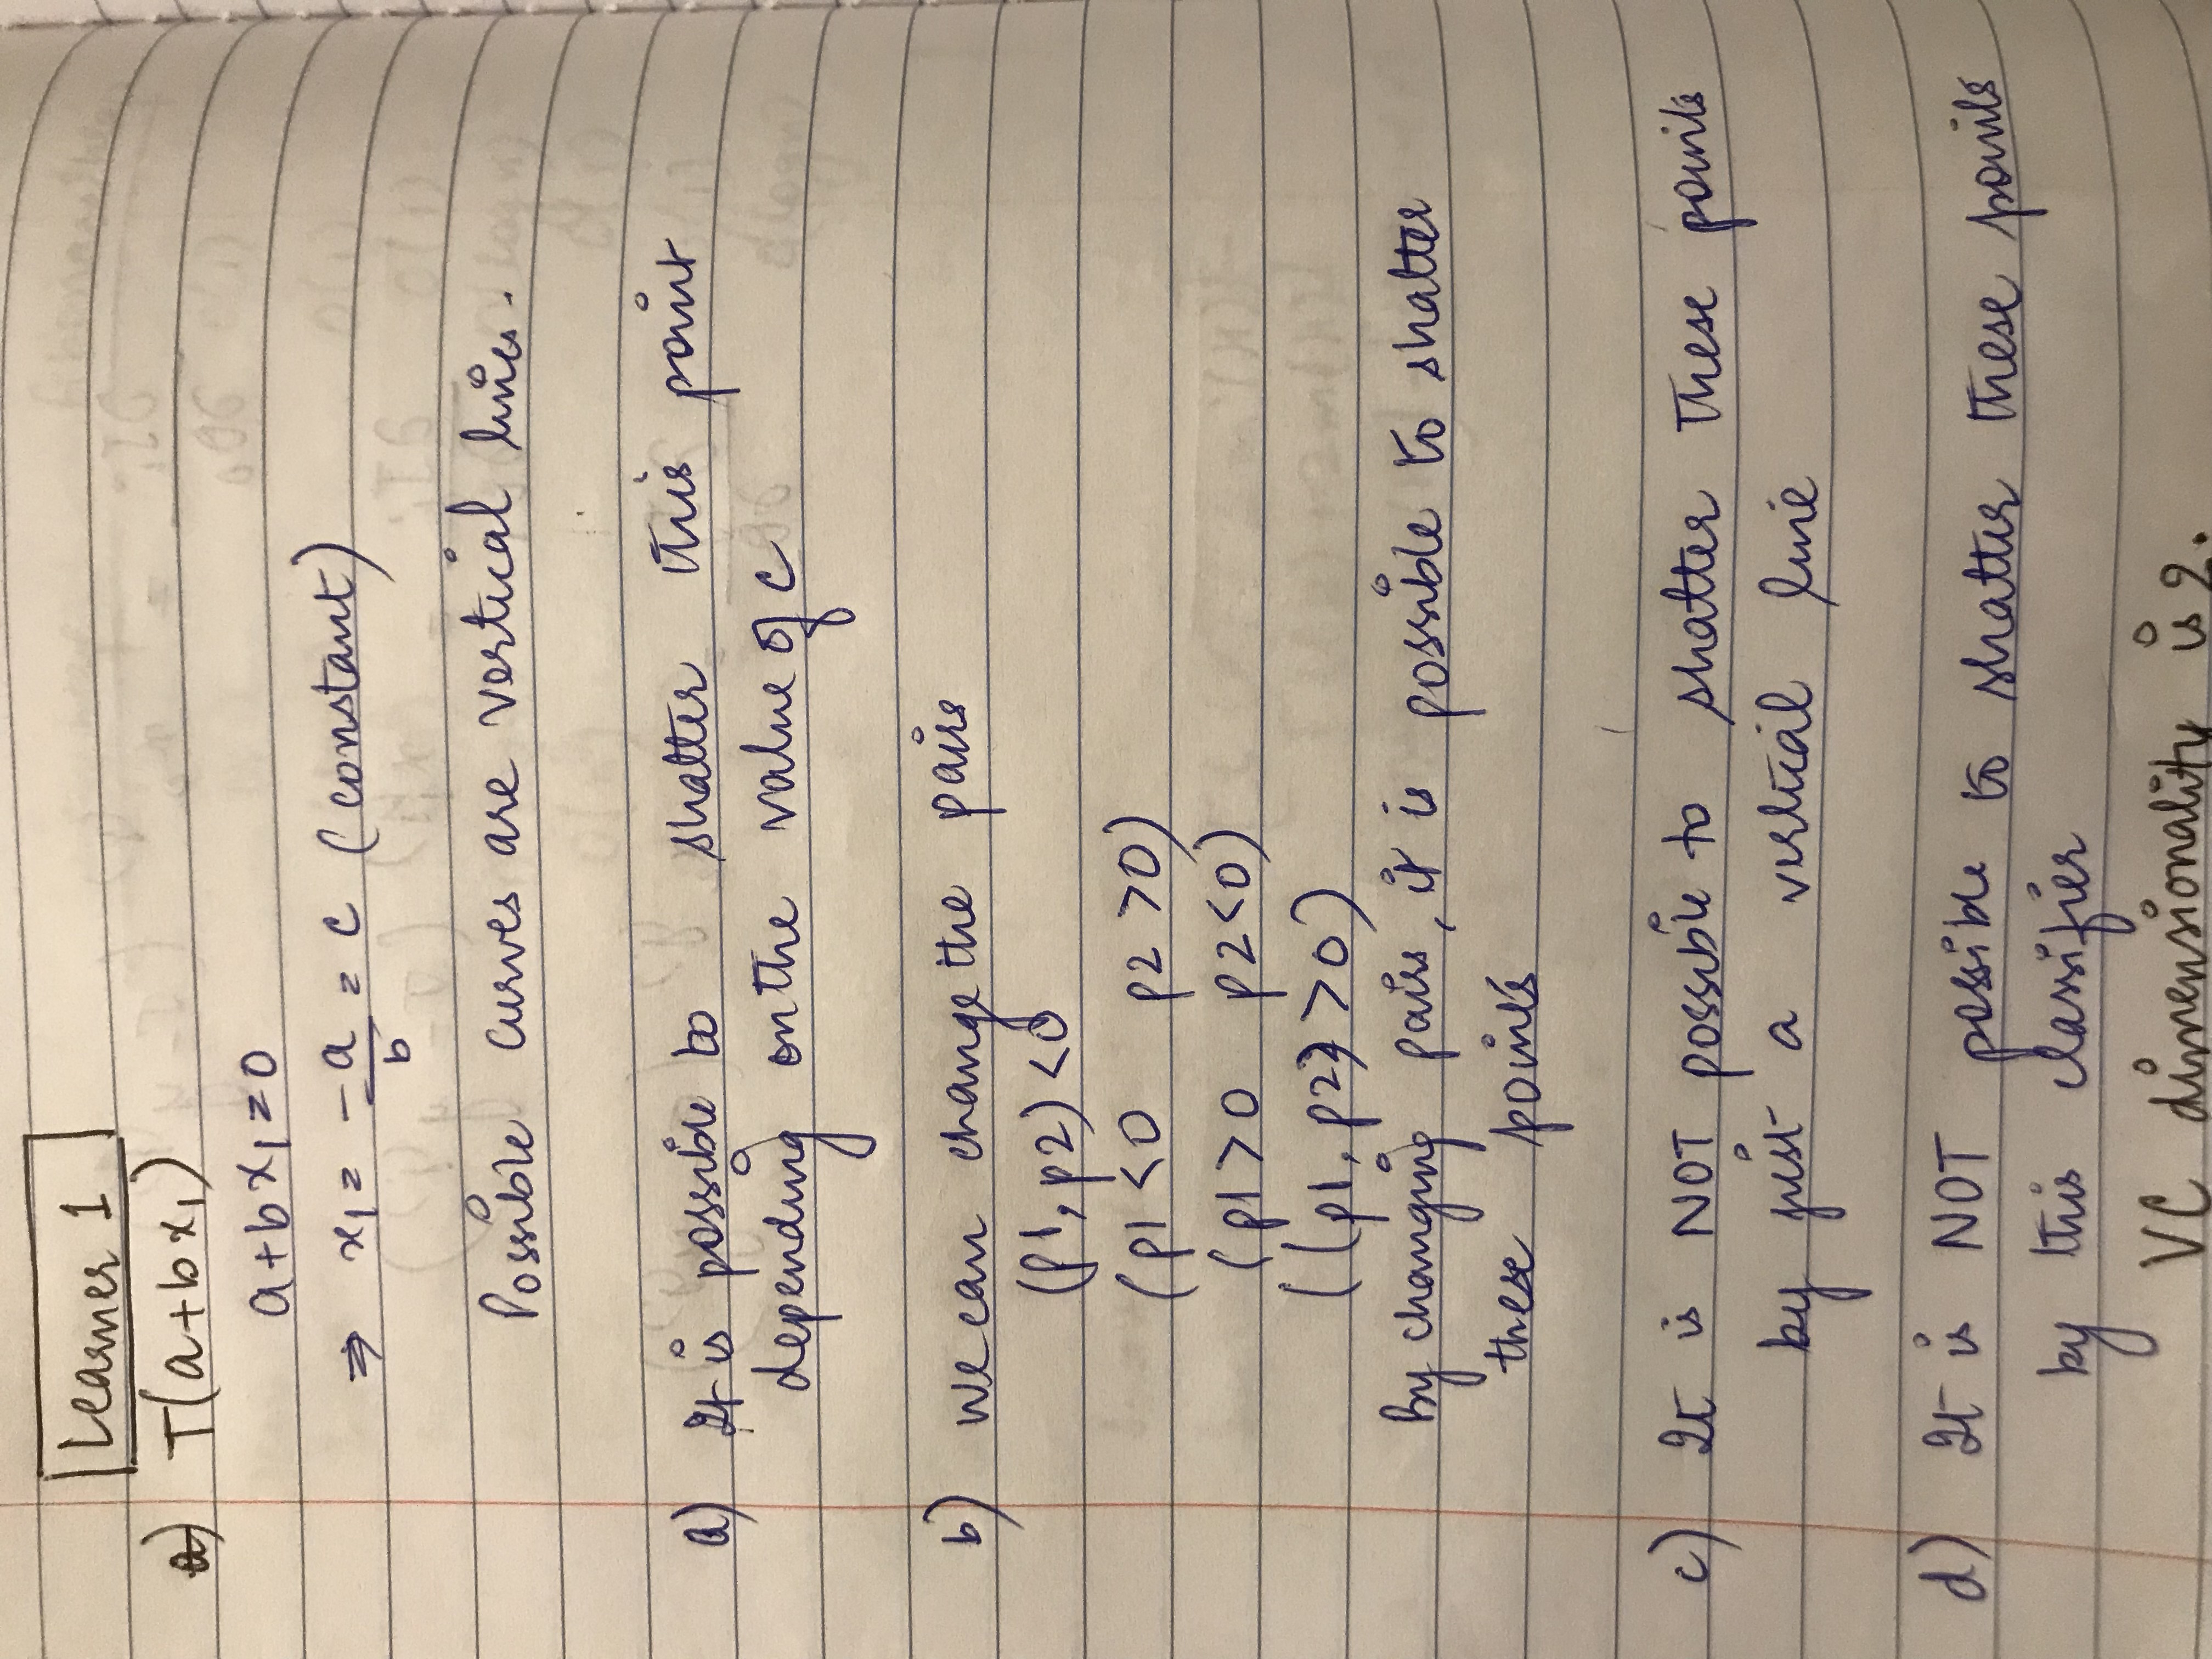 Learner 1
a) T(a+bx₁)
a+bx₁=0
⇒ x₁ = -a/b = c (constant)
Possible curves are vertical lines.
a) It is possible to shatter this point
depending on the value of c
b) We can change the pairs
(p1, p2) <0
(p1 <0 p2 >0)
(p1 >0 p2 <0)
((p1, p2) >0)
By changing pairs, it is possible to shatter
these points
c) It is NOT possible to shatter these points
by just a vertical line
d) It is NOT possible to shatter these points
by this classifier
VC dimensionality is 2.